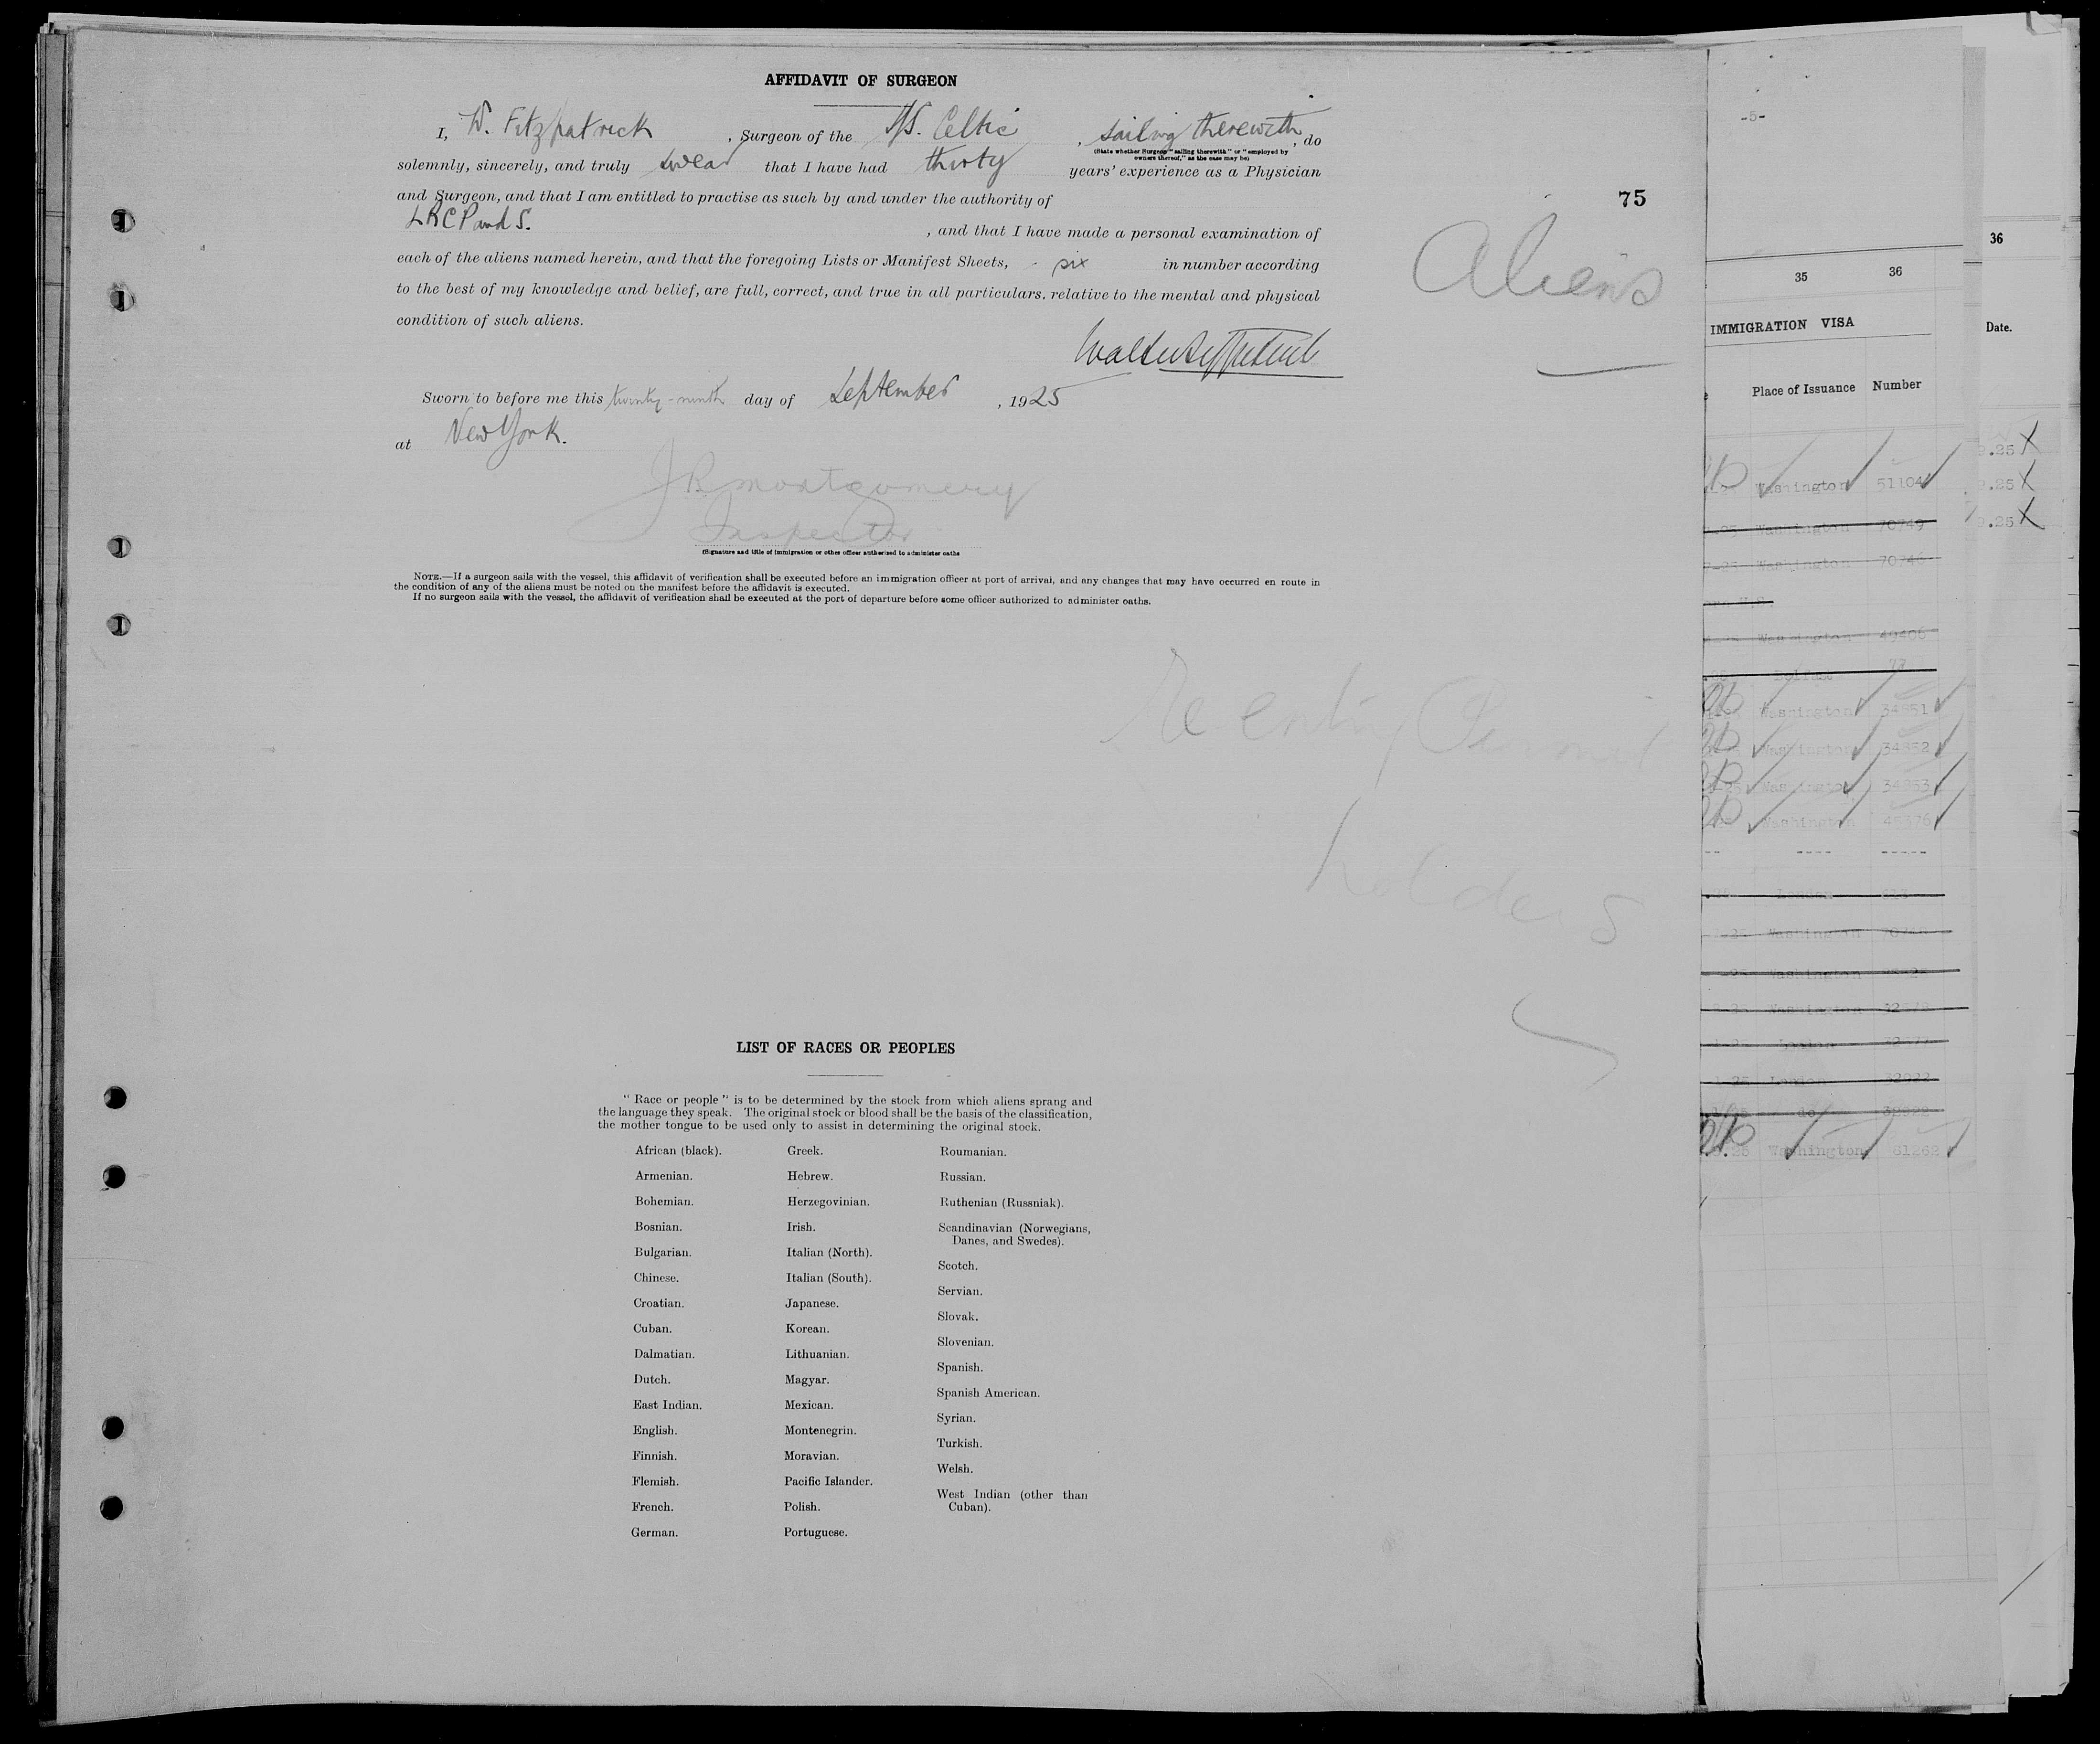 AFFIDAVIT OF SURGEON
I, W. Fitzpatrick, Surgeon of the S/S. Celtic, sailing therewith, do
(State whether Surgeon "sailing therewith" or "employed by
owners thereof," as the case may be)
solemnly, sincerely, and truly swear that I have had thirty years' experience as a Physician
and Surgeon, and that I am entitled to practise as such by and under the authority of
LRCP and S.
, and that I have made a personal examination of
each of the aliens named herein, and that the foregoing Lists or Manifest Sheets, - six in number according
to the best of my knowledge and belief, are full, correct, and true in all particulars, relative to the mental and physical
condition of such aliens.
Sworn to before me this twenty-ninth day of September, 1925
at New York.
J R Montgomery
Inspector
(Signature and title of immigration or other officer authorized to administer oaths
NOTE.—If a surgeon sails with the vessel, this affidavit of verification shall be executed before an immigration officer at port of arrival, and any changes that may have occurred en route in
the condition of any of the aliens must be noted on the manifest before the affidavit is executed.
If no surgeon sails with the vessel, the affidavit of verification shall be executed at the port of departure before some officer authorized to administer oaths.
75
Aliens
Re entry Permit
holders
LIST OF RACES OR PEOPLES
"Race or people" is to be determined by the stock from which aliens sprang and
the language they speak. The original stock or blood shall be the basis of the classification,
the mother tongue to be used only to assist in determining the original stock.
African (black).
Armenian.
Bohemian.
Bosnian.
Bulgarian.
Chinese.
Croatian.
Cuban.
Dalmatian.
Dutch.
East Indian.
English.
Finnish.
Flemish.
French.
German.
Greek.
Hebrew.
Herzegovinian.
Irish.
Italian (North).
Italian (South).
Japanese.
Korean.
Lithuanian.
Magyar.
Mexican.
Montenegrin.
Moravian.
Pacific Islander.
Polish.
Portuguese.
Roumanian.
Russian.
Ruthenian (Russniak).
Scandinavian (Norwegians,
Danes, and Swedes).
Scotch.
Servian.
Slovak.
Slovenian.
Spanish.
Spanish American.
Syrian.
Turkish.
Welsh.
West Indian (other than
Cuban).
-5-
35 36
IMMIGRATION VISA
Place of Issuance Number
Washington 51104
Washington 70749
Washington
Washington
Belfast 77
Washington 34851
Washington 34852
Washington 34853
Washington 45376
---- -----
London
Washington
Washington
Washington
London
London
do
Washington 61262
36
Date.
.25
.25
.25